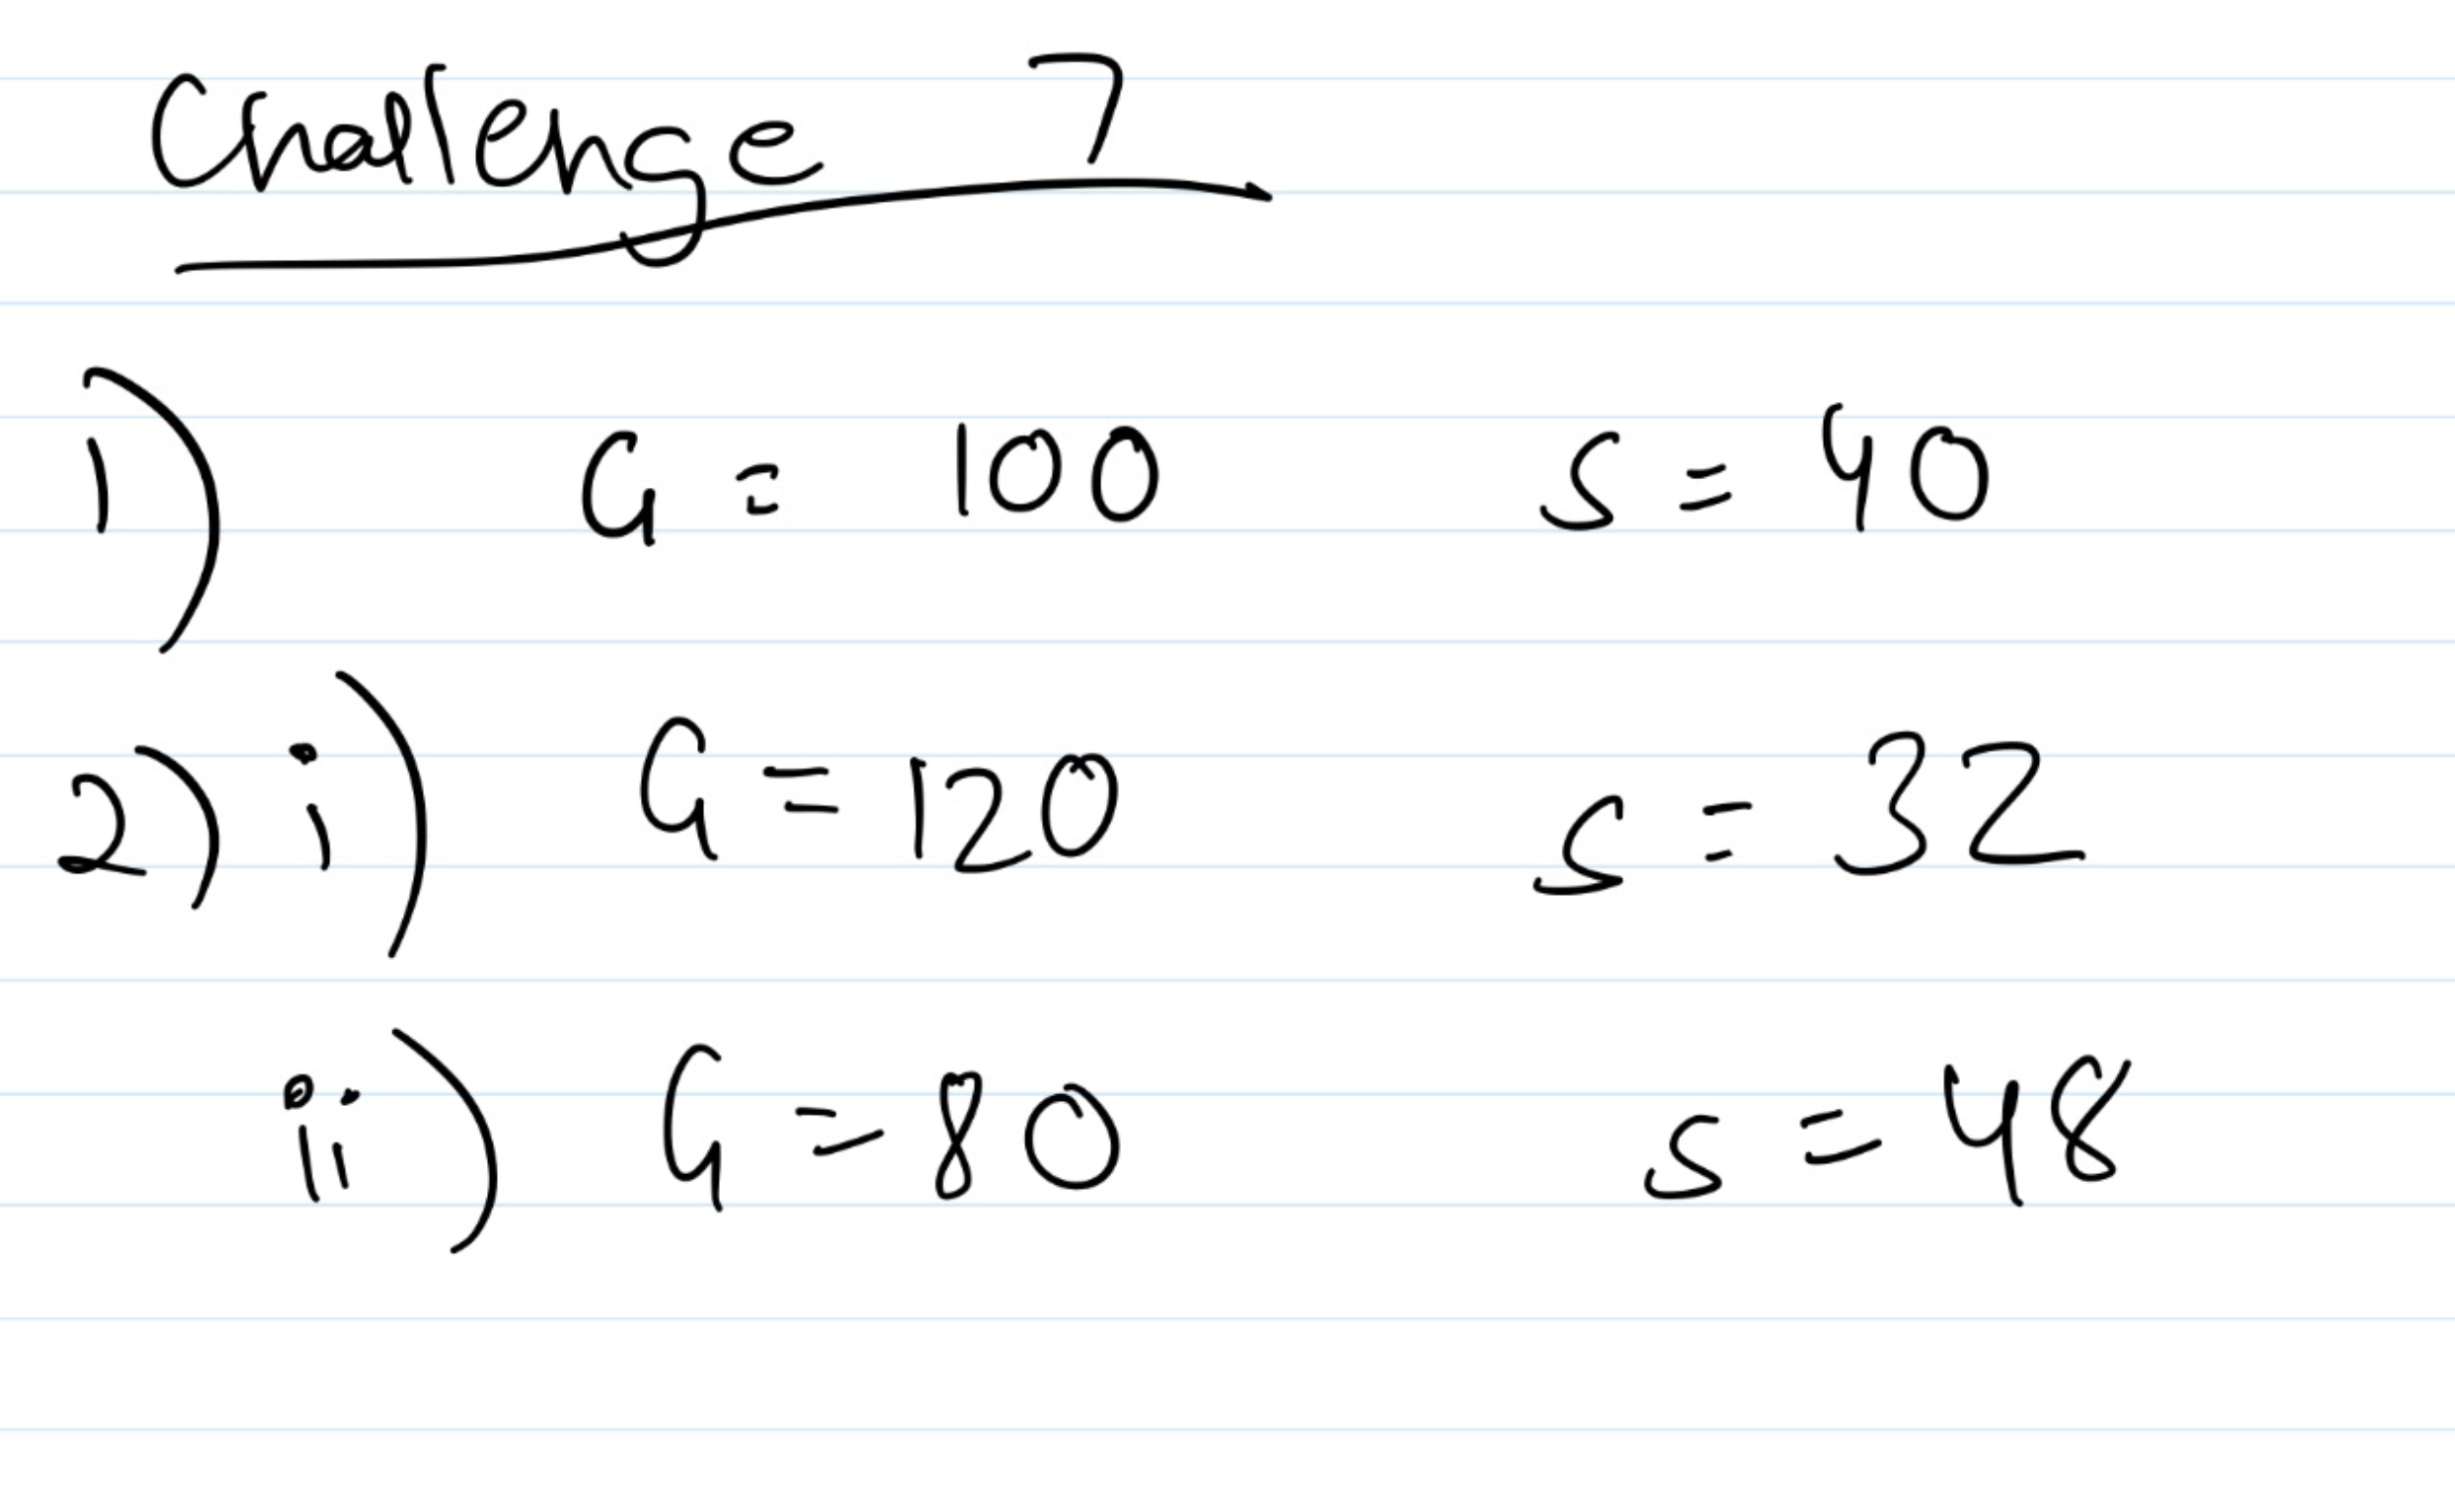 Challenge 7
1) G = 100 S = 40
2) i) G = 120 S = 32
ii) G = 80 S = 48